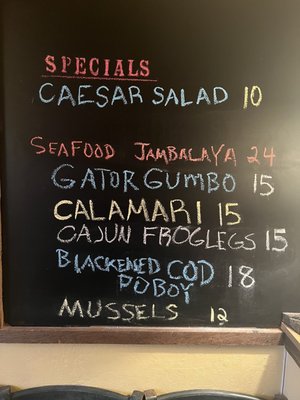 SPECIALS
CAESAR SALAD 10
SEAFOOD JAMBALAYA 24
GATOR GUMBO 15
CALAMARI 15
CAJUN FROGLEGS 15
BLACKENED COD 18
POBOY
MUSSELS 12